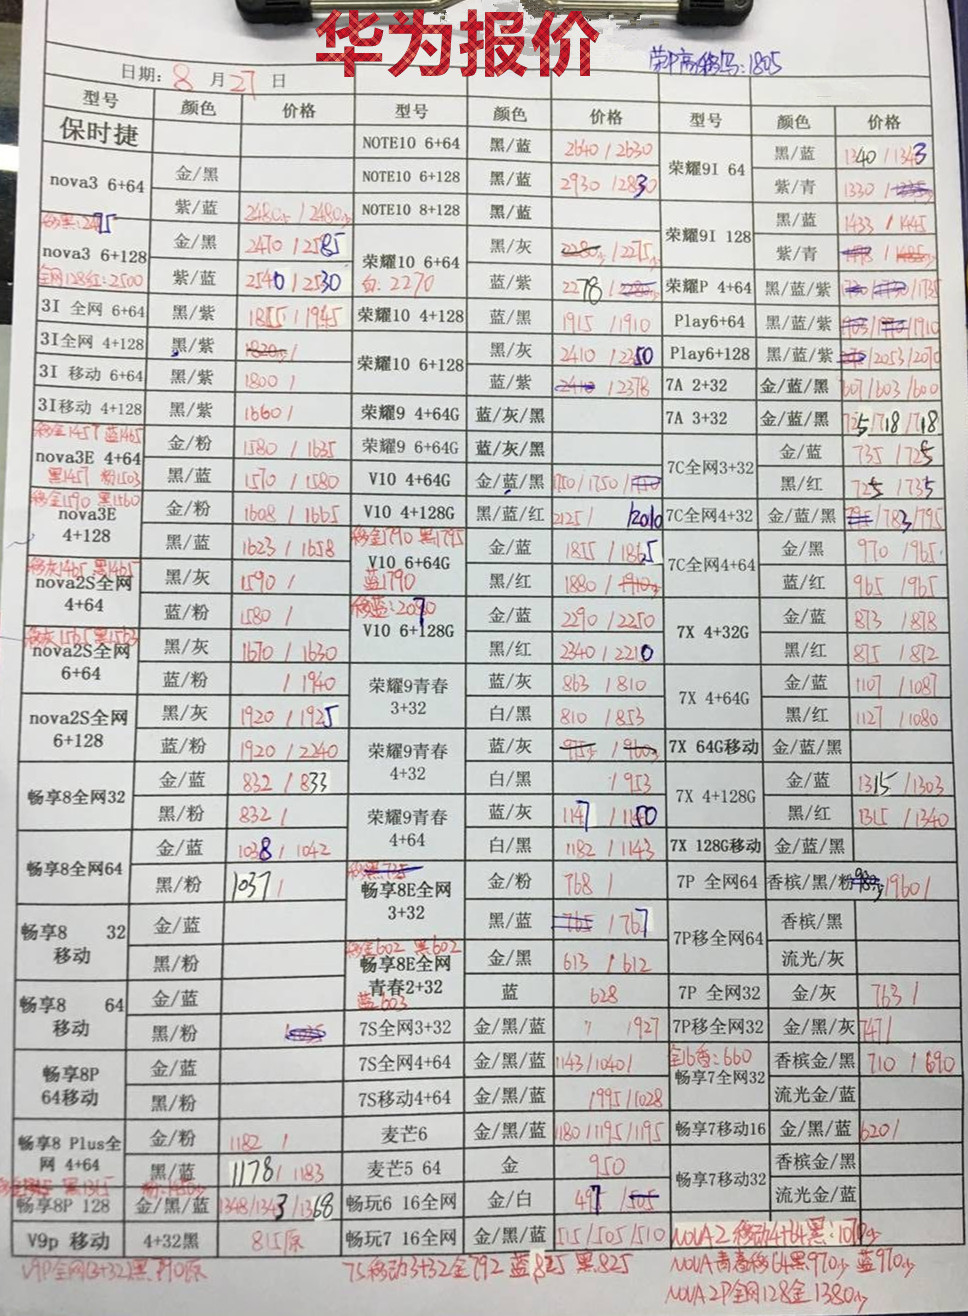 华为报价
荣P高移, 1805
日期: 8 月 27 日
型号 颜色 价格 型号 颜色 价格 型号 颜色 价格
保时捷 NOTE10 6+64 黑/蓝 2640/2630 荣耀9I 64 黑/蓝 1340/1343
nova3 6+64 金/黑 NOTE10 6+128 黑/蓝 2930/2830 紫/青 1330/
紫/蓝 2480/2480 NOTE10 8+128 黑/蓝 荣耀9I 128 黑/蓝 1433/1445
移黑:2495
nova3 6+128 金/黑 2470/2585 荣耀10 6+64 黑/灰 2280/2275 紫/青
全网128红:2500 紫/蓝 2540/2530 白:2270 蓝/紫 2278/ 荣耀P 4+64 黑/蓝/紫 /1735
3I 全网 6+64 黑/紫 1855/1945 荣耀10 4+128 蓝/黑 1915/1910 Play6+64 黑/蓝/紫 /1910
3I全网 4+128 黑/紫 1820/ 荣耀10 6+128 黑/灰 2410/2350 Play6+128 黑/蓝/紫 /2053/2070
3I 移动 6+64 黑/紫 1800/ 蓝/紫 2410/2378 7A 2+32 金/蓝/黑 607/603/600
3I移动 4+128 黑/紫 1660/ 荣耀9 4+64G 蓝/灰/黑 7A 3+32 金/蓝/黑 725/718/718
移金1457 蓝1465
nova3E 4+64 金/粉 1580/1635 荣耀9 6+64G 蓝/灰/黑 7C全网3+32 金/蓝 735/725
黑1457 粉1503 黑/蓝 1570/1580 V10 4+64G 金/蓝/黑 1750/1750/ 黑/红 725/735
移金1590 黑1560
nova3E 4+128 金/粉 1608/1665 V10 4+128G 黑/蓝/红 2125/ 2010 7C全网4+32 金/蓝/黑 /783/795
黑/蓝 1623/1658 移金1790 黑1795 V10 6+64G 金/蓝 1855/1865 7C全网4+64 金/黑 970/965
移灰1465 黑1465
nova2S全网 4+64 黑/灰 1590/ 蓝1790 黑/红 1880/ 蓝/红 965/965
蓝/粉 1580/ 移蓝:2090 V10 6+128G 金/蓝 2290/2250 7X 4+32G 金/蓝 873/878
移灰1565 黑1563
nova2S全网 6+64 黑/灰 1670/1630 黑/红 2340/2210 黑/红 875/872
蓝/粉 /1940 荣耀9青春 3+32 蓝/灰 863/810 7X 4+64G 金/蓝 1107/1087
nova2S全网 6+128 黑/灰 1920/1925 白/黑 810/853 黑/红 1127/1080
蓝/粉 1920/2240 荣耀9青春 4+32 蓝/灰 975/960 7X 64G移动 金/蓝/黑
畅享8全网32 金/蓝 832/833 白/黑 /953 7X 4+128G 金/蓝 1315/1303
黑/粉 832/ 荣耀9青春 4+64 蓝/灰 1147/1150 黑/红 1315/1340
畅享8全网64 金/蓝 1038/1042 白/黑 1182/1143 7X 128G移动 金/蓝/黑
黑/粉 1037/ 移黑:735 畅享8E全网 3+32 金/粉 768/ 7P 全网64 香槟/黑/粉 960/
畅享8 32 移动 金/蓝 黑/蓝 765/767 7P移全网64 香槟/黑
黑/粉 移金602 黑602 畅享8E全网 青春2+32 金/黑 613/612 流光/灰
畅享8 64 移动 金/蓝 蓝:603 蓝 628 7P 全网32 金/灰 763/
黑/粉 7S全网3+32 金/黑/蓝 /927 7P移全网32 金/黑/灰 747/
畅享8P 64移动 金/蓝 7S全网4+64 金/黑/蓝 1143/1040/ 全16香:660 畅享7全网32 香槟金/黑 710/690
黑/粉 7S移动4+64 金/黑/蓝 /995/1028 流光金/蓝
畅享8 Plus全网 4+64 金/粉 1182/ 麦芒6 金/黑/蓝 1180/1195/1195 畅享7移动16 金/黑/蓝 620/
黑/蓝 1178/1183 麦芒5 64 金 950 畅享7移动32 香槟金/黑
黑1315
畅享8P 128 金/黑/蓝 1348/1343/1368 畅玩6 16全网 金/白 497/505 流光金/蓝
V9p 移动 4+32黑 815原 畅玩7 16全网 金/黑/蓝 515/505/510 NOVA2移动4+64黑:
V9P全网(3+32)黑:790原 7S移动3+32金792 蓝825 黑825 NOVA青春移64黑970 蓝970
NOVA2P全网128金1380